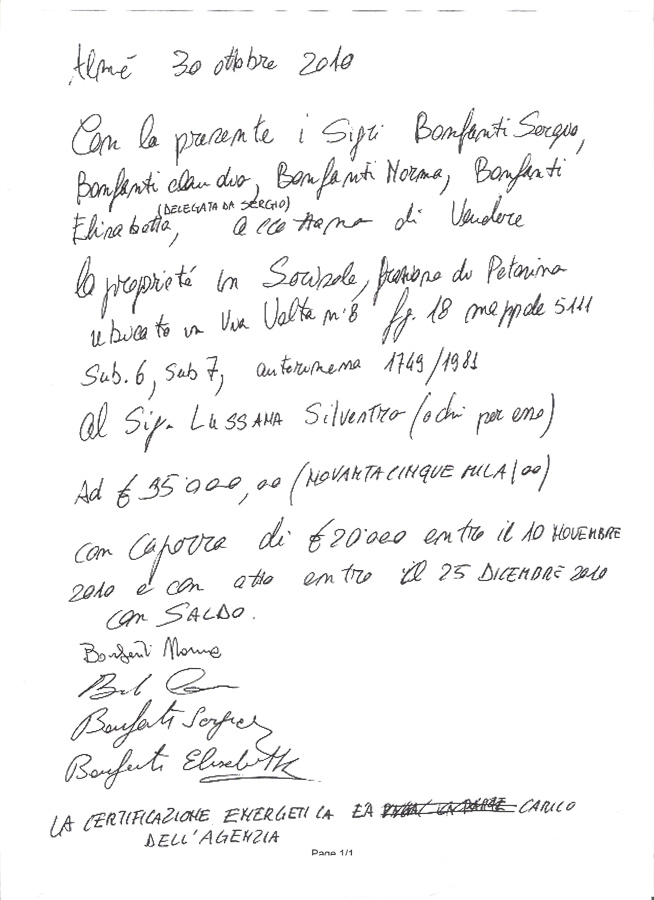 Almé 30 ottobre 2010
Con la presente i Sigri Bonfanti Sergio,
Bonfanti claudio, Bonfanti Norma, Bonfanti
(DELEGATA DA SERGIO)
Elisabetta, accettano di Vendere
la proprietà in Sorisole, frazione di Petosino
ubicato in Via Volta n.8 fg. 18 mappale 5111
Sub. 6, Sub 7, autorimessa 1749/1981
al Sig. LUSSANA Silvestro (o chi per esso)
Ad € 95'000,00 (NOVANTACINQUE MILA/00)
con Caparra di €20'000 entro il 10 NOVEMBRE
2010 e con atto entro il 25 DICEMBRE 2010
con SALDO.
Bonfanti Norma
Bonfanti Sergio
Bonfanti Elisabetta
LA CERTIFICAZIONE ENERGETICA EA CARICO
DELL'AGENZIA
Page 1/1